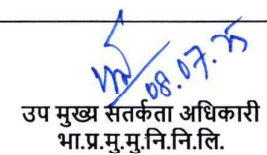 08.07.
उप मुख्य सतर्कता अधिकारी
भा.प्र.मु.मु.नि.नि.लि.